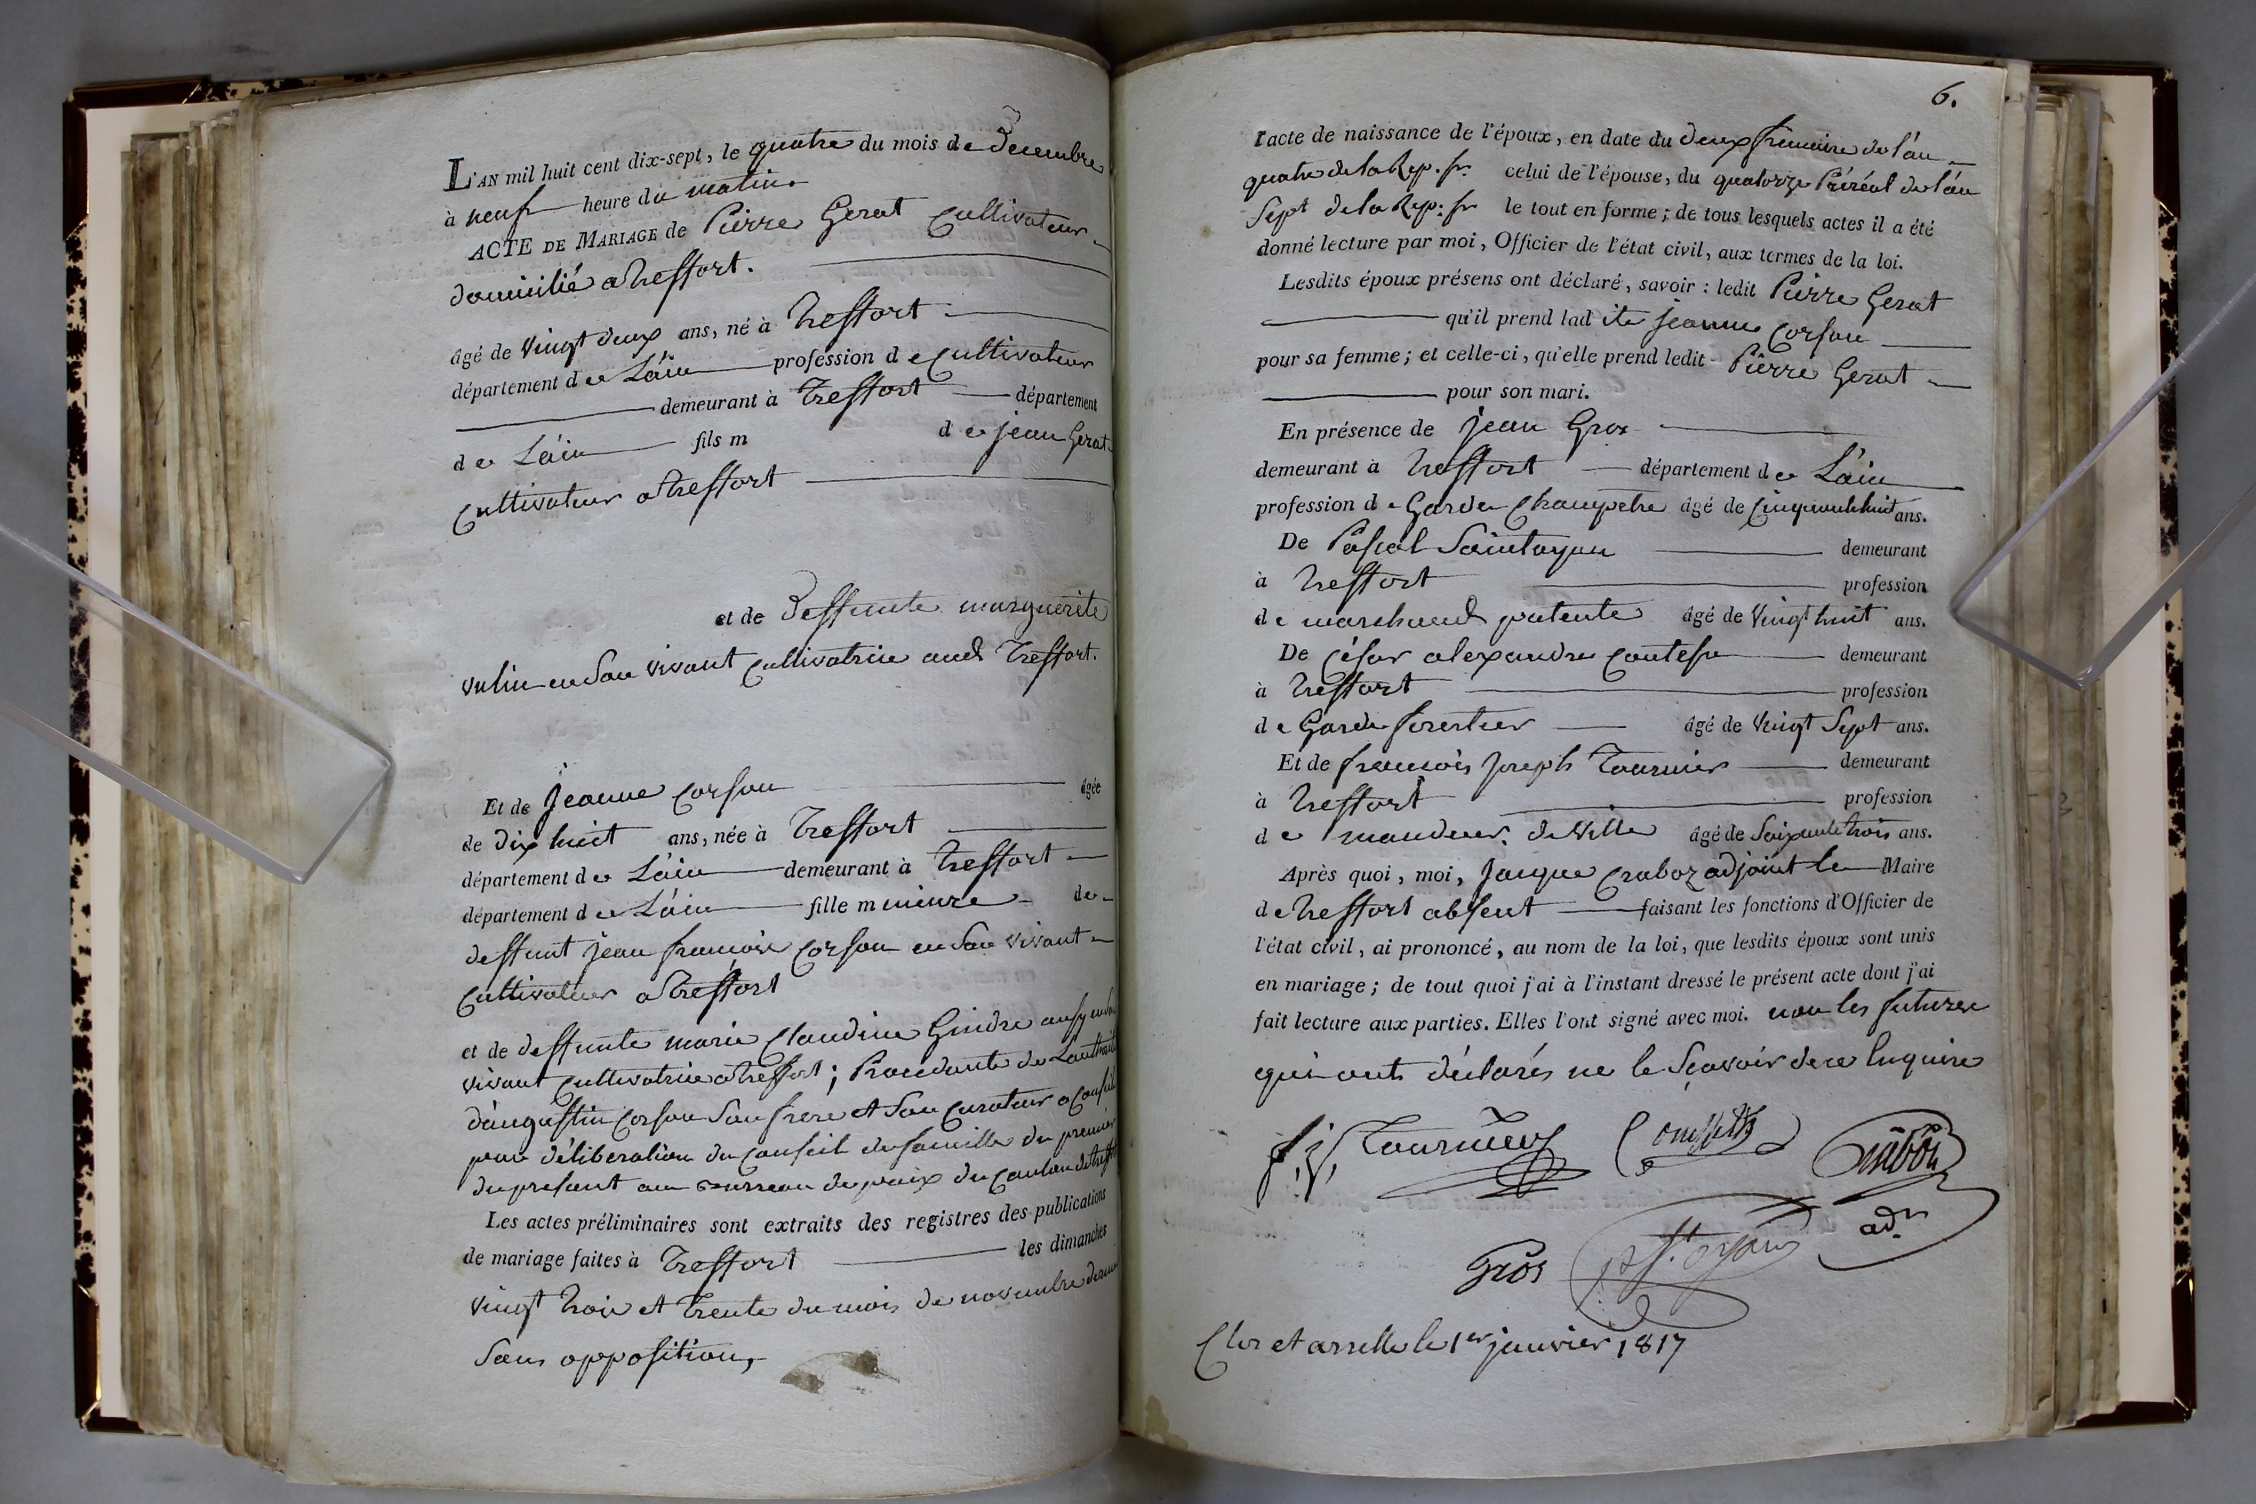 L'AN mil huit cent dix-sept, le quatre du mois de Decembre
à neuf heure du matin.
ACTE DE MARIAGE de Pierre Gerat Cultivateur
domicilié a treffort.
âgé de vingt deux ans, né à treffort
département de L'ain profession de Cultivateur
demeurant à treffort département
de L'ain fils m de jean Gerat
Cultivateur a treffort
et de deffunte marguerite
vulin en son vivant Cultivatrice aud treffort.
Et de jeanne Corson âgée
de dix huit ans, née à treffort
département de L'ain demeurant à treffort
département de L'ain fille m mineure de
deffunt jean francois Corson en son vivant
Cultivateur a treffort
et de deffunte marie Claudine Gindre en son
vivant Cultivatrice a treffort; Procedante de L'authorité
d'augustin Corson son frere et son Curateur a Conseil
par déliberation du Conseil de famille du premier
du present au bureau de paix du Canton de treffort
Les actes préliminaires sont extraits des registres des publications
de mariage faites à treffort les dimanches
vingt trois et trente du mois de novembre dernier
sans opposition,
6.
l'acte de naissance de l'époux, en date du deux frimaire de l'an
quatre de la Rep. fr. celui de l'épouse, du quatorze Préréal de l'an
Sept de la Rep. fr le tout en forme; de tous lesquels actes il a été
donné lecture par moi, Officier de l'état civil, aux termes de la loi.
Lesdits époux présens ont déclaré, savoir: ledit Pierre Gerat
qu'il prend ladite jeanne Corson
pour sa femme; et celle-ci, qu'elle prend ledit Pierre Gerat
pour son mari.
En présence de jean Gros
demeurant à treffort département de L'ain
profession de Garde Champetre âgé de Cinquante huit ans.
De Pascal Saintoyan demeurant
à treffort profession
de marchand patente âgé de vingt huit ans.
De César alexandre demeurant
à treffort profession
de Garde forestier âgé de vingt Sept ans.
Et de francois joseph Tournier demeurant
à treffort profession
de mandeur de ville âgé de Soixante trois ans.
Après quoi, moi, jacque Craboz adjoint le Maire
de treffort absent faisant les fonctions d'Officier de
l'état civil, ai prononcé, au nom de la loi, que lesdits époux sont unis
en mariage; de tout quoi j'ai à l'instant dressé le présent acte dont j'ai
fait lecture aux parties. Elles l'ont signé avec moi. non les futures
qui ont déclarés ne le sçavoir de ce Enquire
f, j, Tournier Craboz
adn
Gros p St. oyan
Clos et arretté le 1er janvier 1817